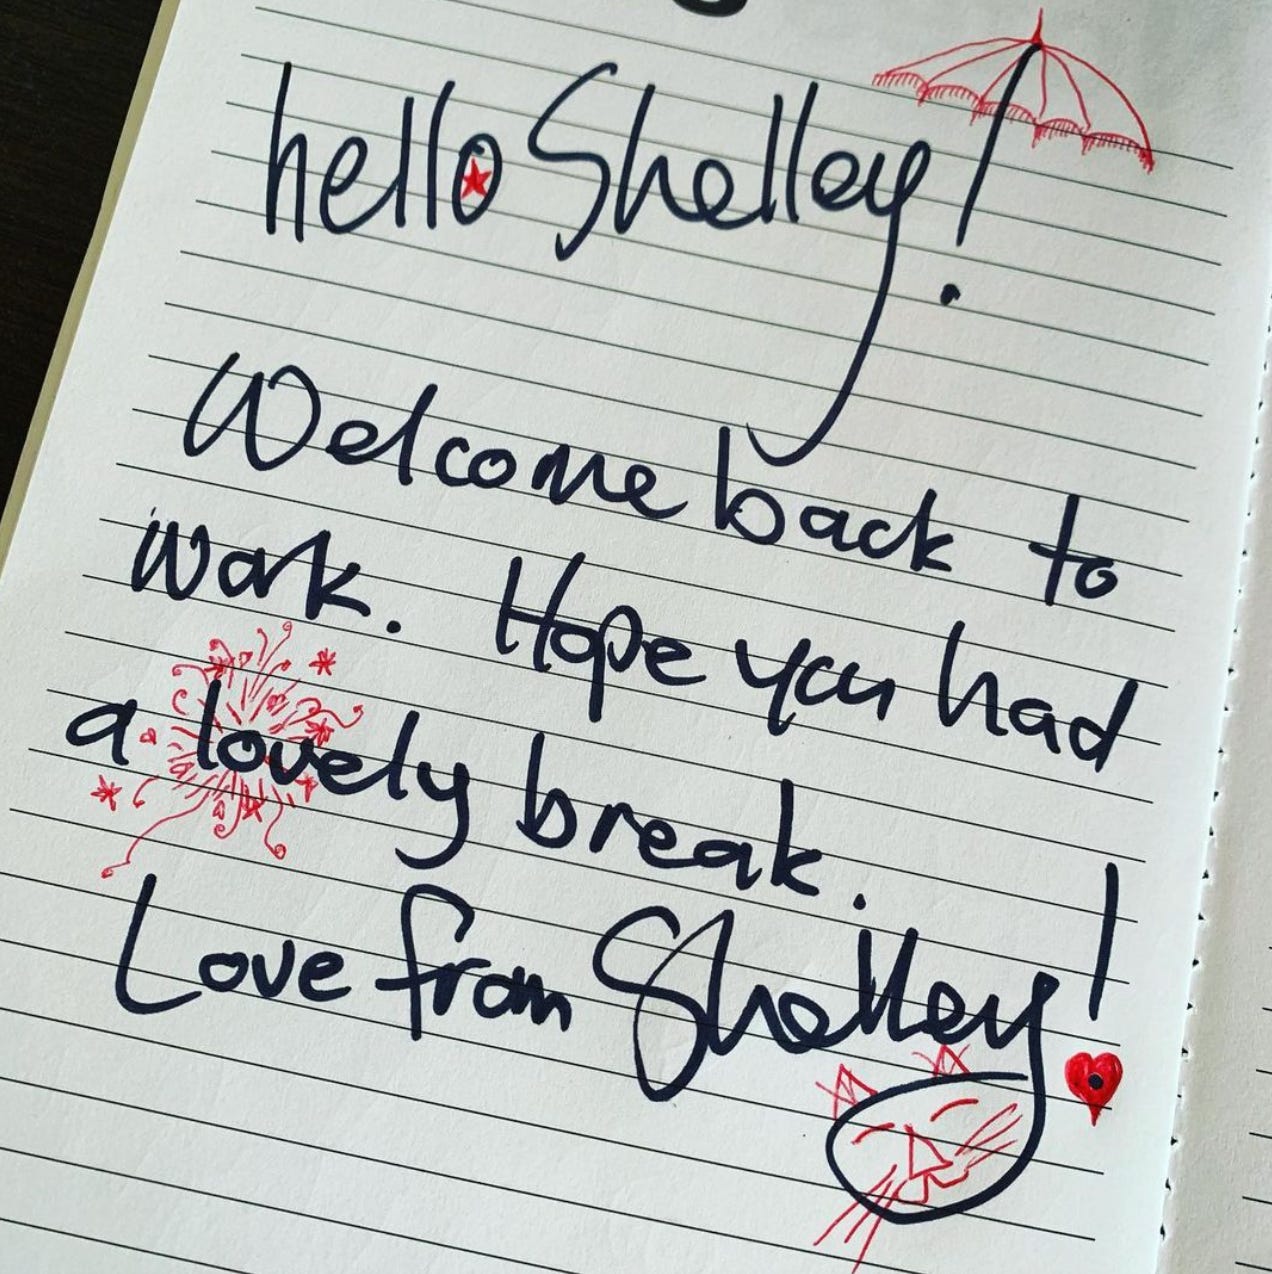 hello Shelley!
Welcome back to
work. Hope you had
a lovely break.
Love from Shelley!